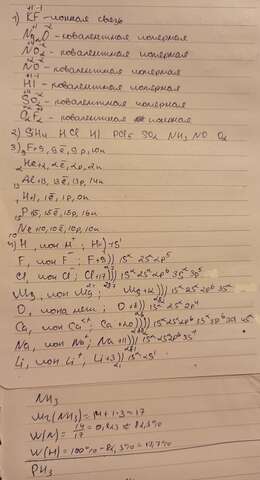 1) KF - ионная связь
Na₂O - ковалентная полярная
NO₂ - ковалентная полярная
NO - ковалентная полярная
HI - ковалентная полярная
SO₂ - ковалентная полярная
OF₂ - ковалентная полярная
2) SiH₄ HCl HI PCl₅ SO₂ NH₃ NO O₂
3) ₉F+9, 9ē, 9p, 10n
₂He+2, 2ē, 2p, 2n
₁₃Al+13, 13ē, 13p, 14n
₁H+1, 1ē, 1p, 0n
₁₅P+15, 15ē, 15p, 16n
₁₀Ne+10, 10ē, 10p, 10n
4) H, ион H⁺; H+1) 1s¹
F, ион F⁻; F+9)) 1s² 2s² 2p⁵
Cl, ион Cl⁻; Cl+17))) 1s² 2s² 2p⁶ 3s² 3p⁵
Mg, ион Mg²⁺; Mg+12))) 1s² 2s² 2p⁶ 3s²
O, иона нет; O+8)) 1s² 2s² 2p⁴
Ca, ион Ca²⁺; Ca+20)))) 1s² 2s² 2p⁶ 3s² 3p⁶ 4s²
Na, ион Na⁺; Na+11))) 1s² 2s² 2p⁶ 3s¹
Li, ион Li⁺; Li+3)) 1s² 2s¹
NH₃
Mr(NH₃) = 14 + 1·3 = 17
W(N) = 14/17 = 0,823 = 82,3%
W(H) = 100% - 82,3% = 17,7%
PH₃